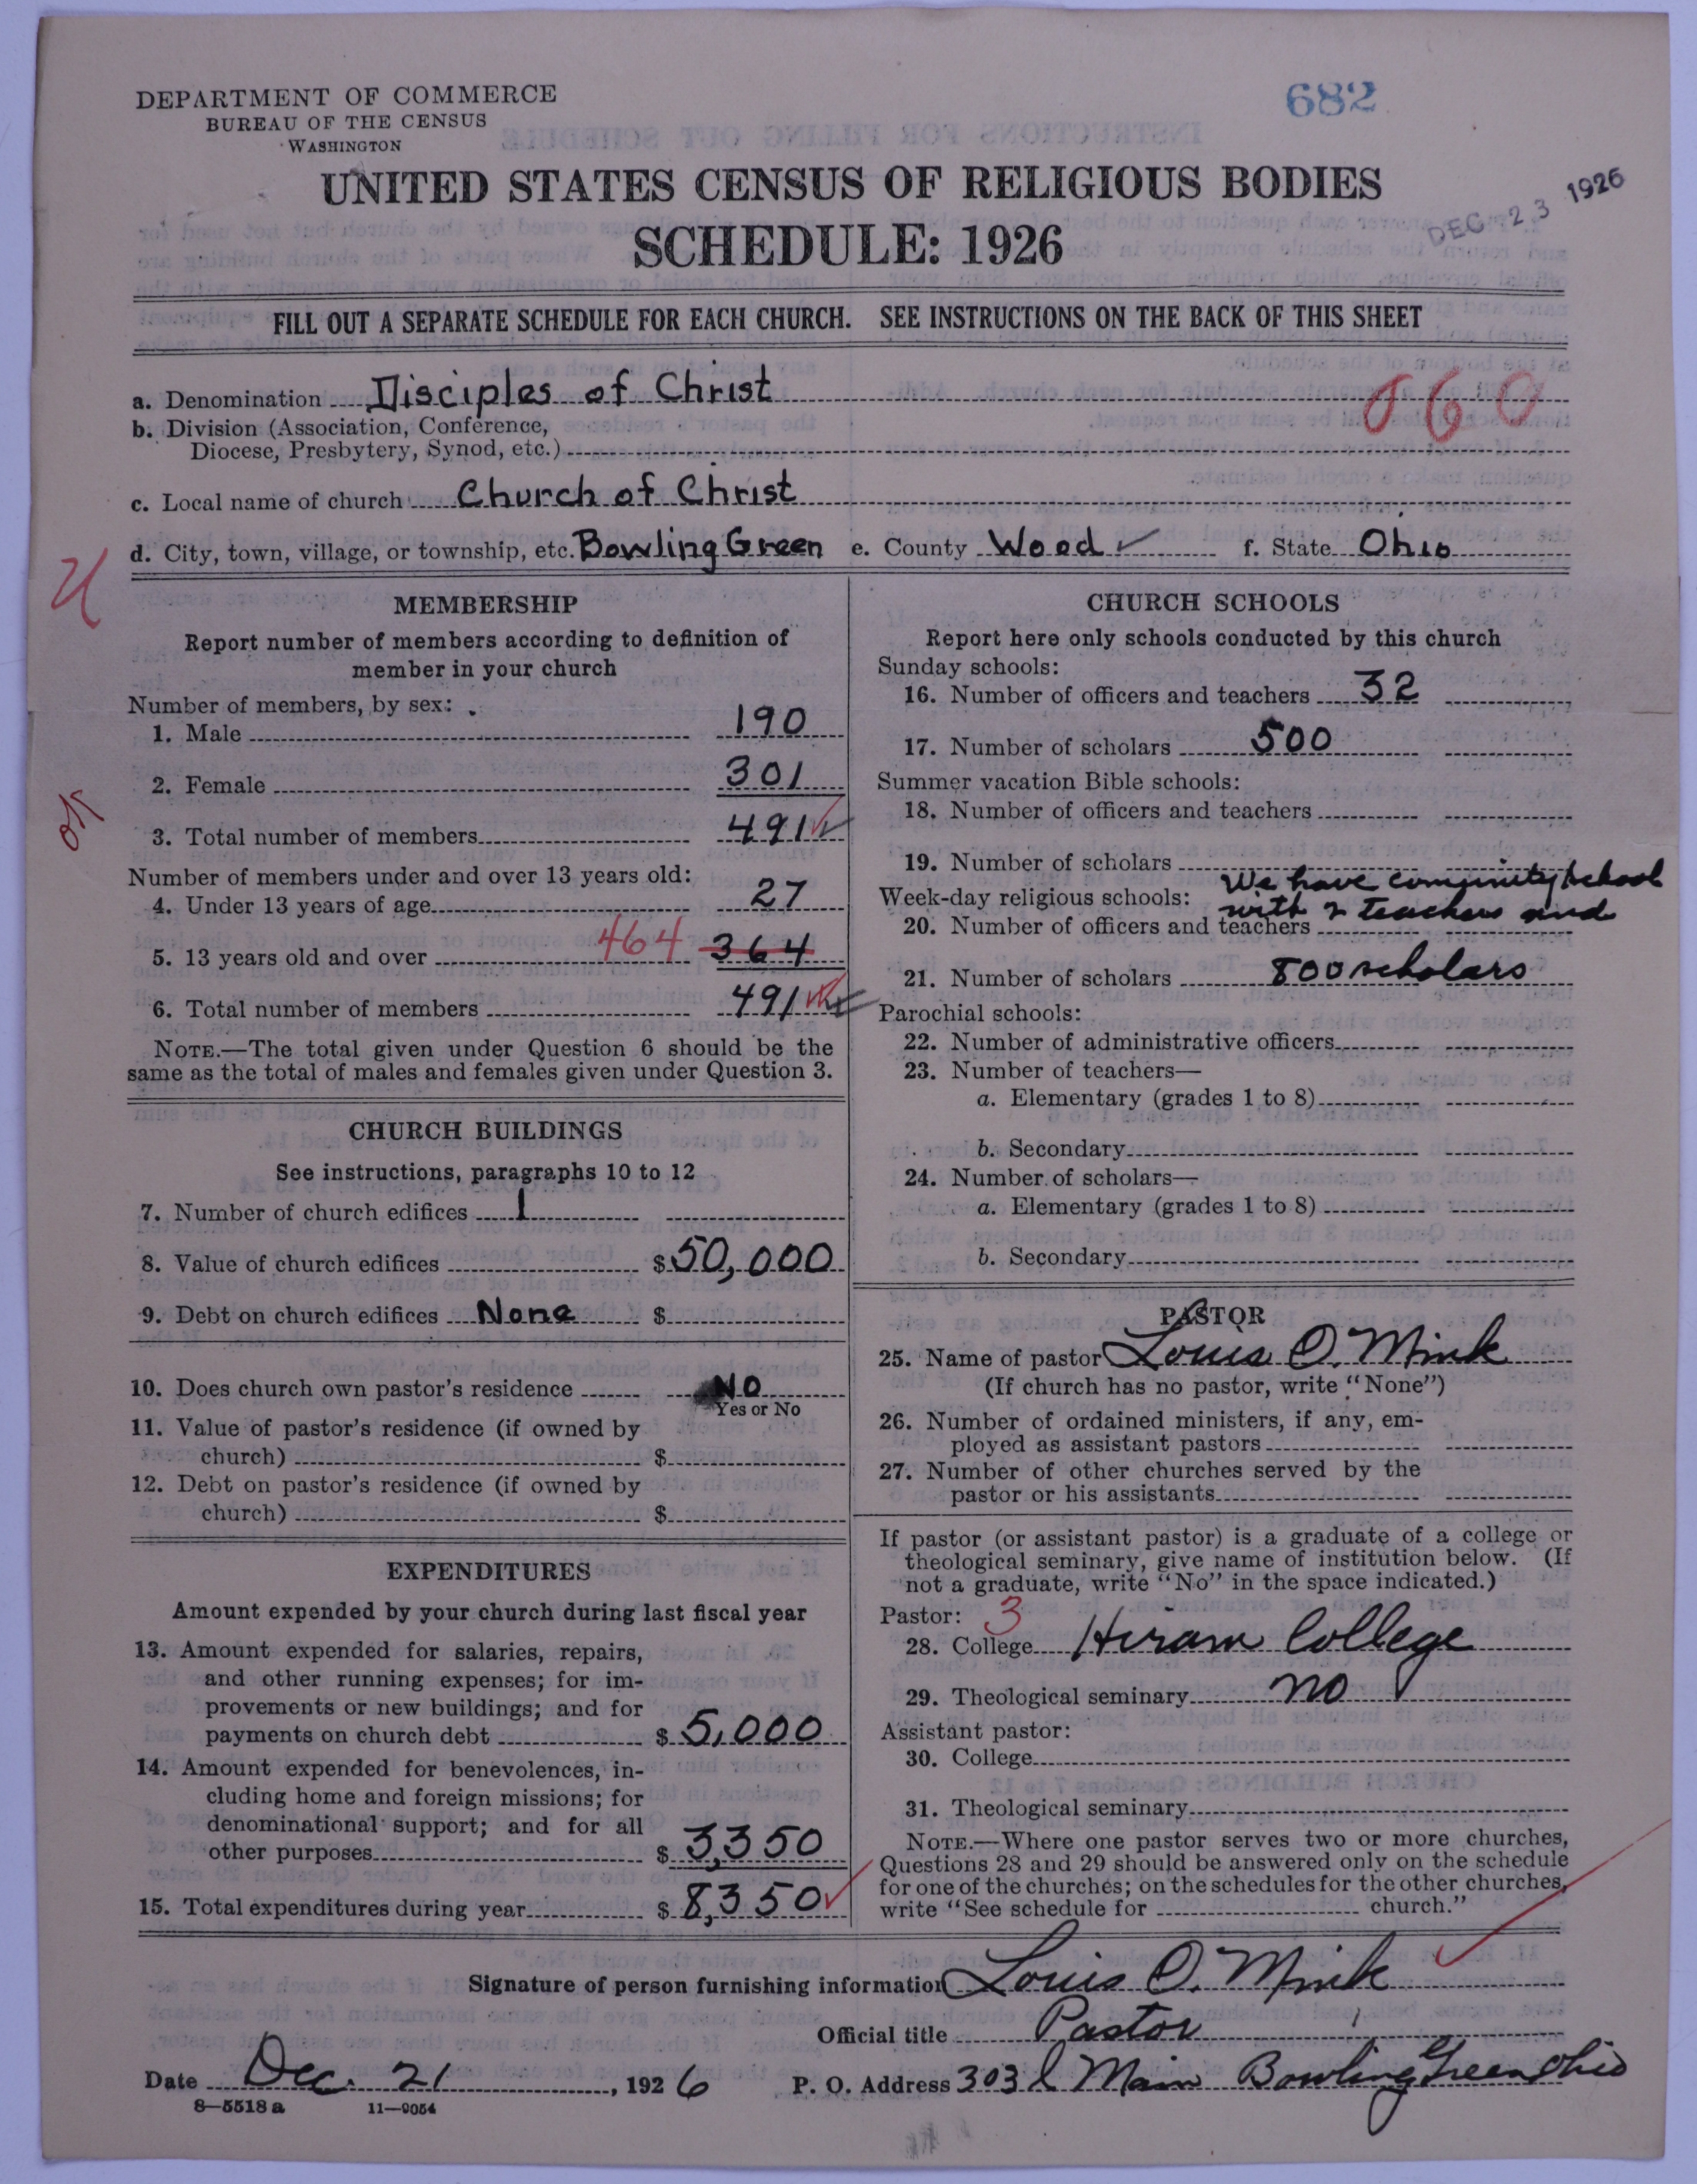 DEPARTMENT OF COMMERCE
BUREAU OF THE CENSUS
WASHINGTON
682
UNITED STATES CENSUS OF RELIGIOUS BODIES
SCHEDULE: 1926
DEC 23 1926
FILL OUT A SEPARATE SCHEDULE FOR EACH CHURCH. SEE INSTRUCTIONS ON THE BACK OF THIS SHEET
a. Denomination Disciples of Christ
060
b. Division (Association, Conference,
Diocese, Presbytery, Synod, etc.)
c. Local name of church Church of Christ
d. City, town, village, or township, etc. Bowling Green e. County Wood ✓ f. State Ohio
MEMBERSHIP
Report number of members according to definition of
member in your church
Number of members, by sex:
1. Male 190
2. Female 301
ok
3. Total number of members 491
Number of members under and over 13 years old:
4. Under 13 years of age 27
5. 13 years old and over 464 364
6. Total number of members 491
NOTE.—The total given under Question 6 should be the
same as the total of males and females given under Question 3.
CHURCH BUILDINGS
See instructions, paragraphs 10 to 12
7. Number of church edifices 1
8. Value of church edifices $50,000
9. Debt on church edifices None $
10. Does church own pastor's residence NO
Yes or No
11. Value of pastor's residence (if owned by
church) $
12. Debt on pastor's residence (if owned by
church) $
EXPENDITURES
Amount expended by your church during last fiscal year
13. Amount expended for salaries, repairs,
and other running expenses; for im-
provements or new buildings; and for
payments on church debt $ 5,000
14. Amount expended for benevolences, in-
cluding home and foreign missions; for
denominational support; and for all
other purposes $ 3,350
15. Total expenditures during year $ 8,350
CHURCH SCHOOLS
Report here only schools conducted by this church
Sunday schools:
16. Number of officers and teachers 32
17. Number of scholars 500
Summer vacation Bible schools:
18. Number of officers and teachers
19. Number of scholars
We have community school
Week-day religious schools: with 2 teachers and
20. Number of officers and teachers
21. Number of scholars 800 scholars
Parochial schools:
22. Number of administrative officers
23. Number of teachers—
a. Elementary (grades 1 to 8)
b. Secondary
24. Number of scholars—
a. Elementary (grades 1 to 8)
b. Secondary
PASTOR
25. Name of pastor Louis O. Mink
(If church has no pastor, write "None")
26. Number of ordained ministers, if any, em-
ployed as assistant pastors
27. Number of other churches served by the
pastor or his assistants
If pastor (or assistant pastor) is a graduate of a college or
theological seminary, give name of institution below. (If
not a graduate, write "No" in the space indicated.)
Pastor: 3
28. College Hiram College
29. Theological seminary no
Assistant pastor:
30. College
31. Theological seminary
NOTE.—Where one pastor serves two or more churches,
Questions 28 and 29 should be answered only on the schedule
for one of the churches; on the schedules for the other churches,
write "See schedule for church."
Signature of person furnishing information Louis O. Mink
Official title Pastor
Date Dec. 21, 1926 P. O. Address 303 Main Bowling Green Ohio
8—5518 a 11—9054